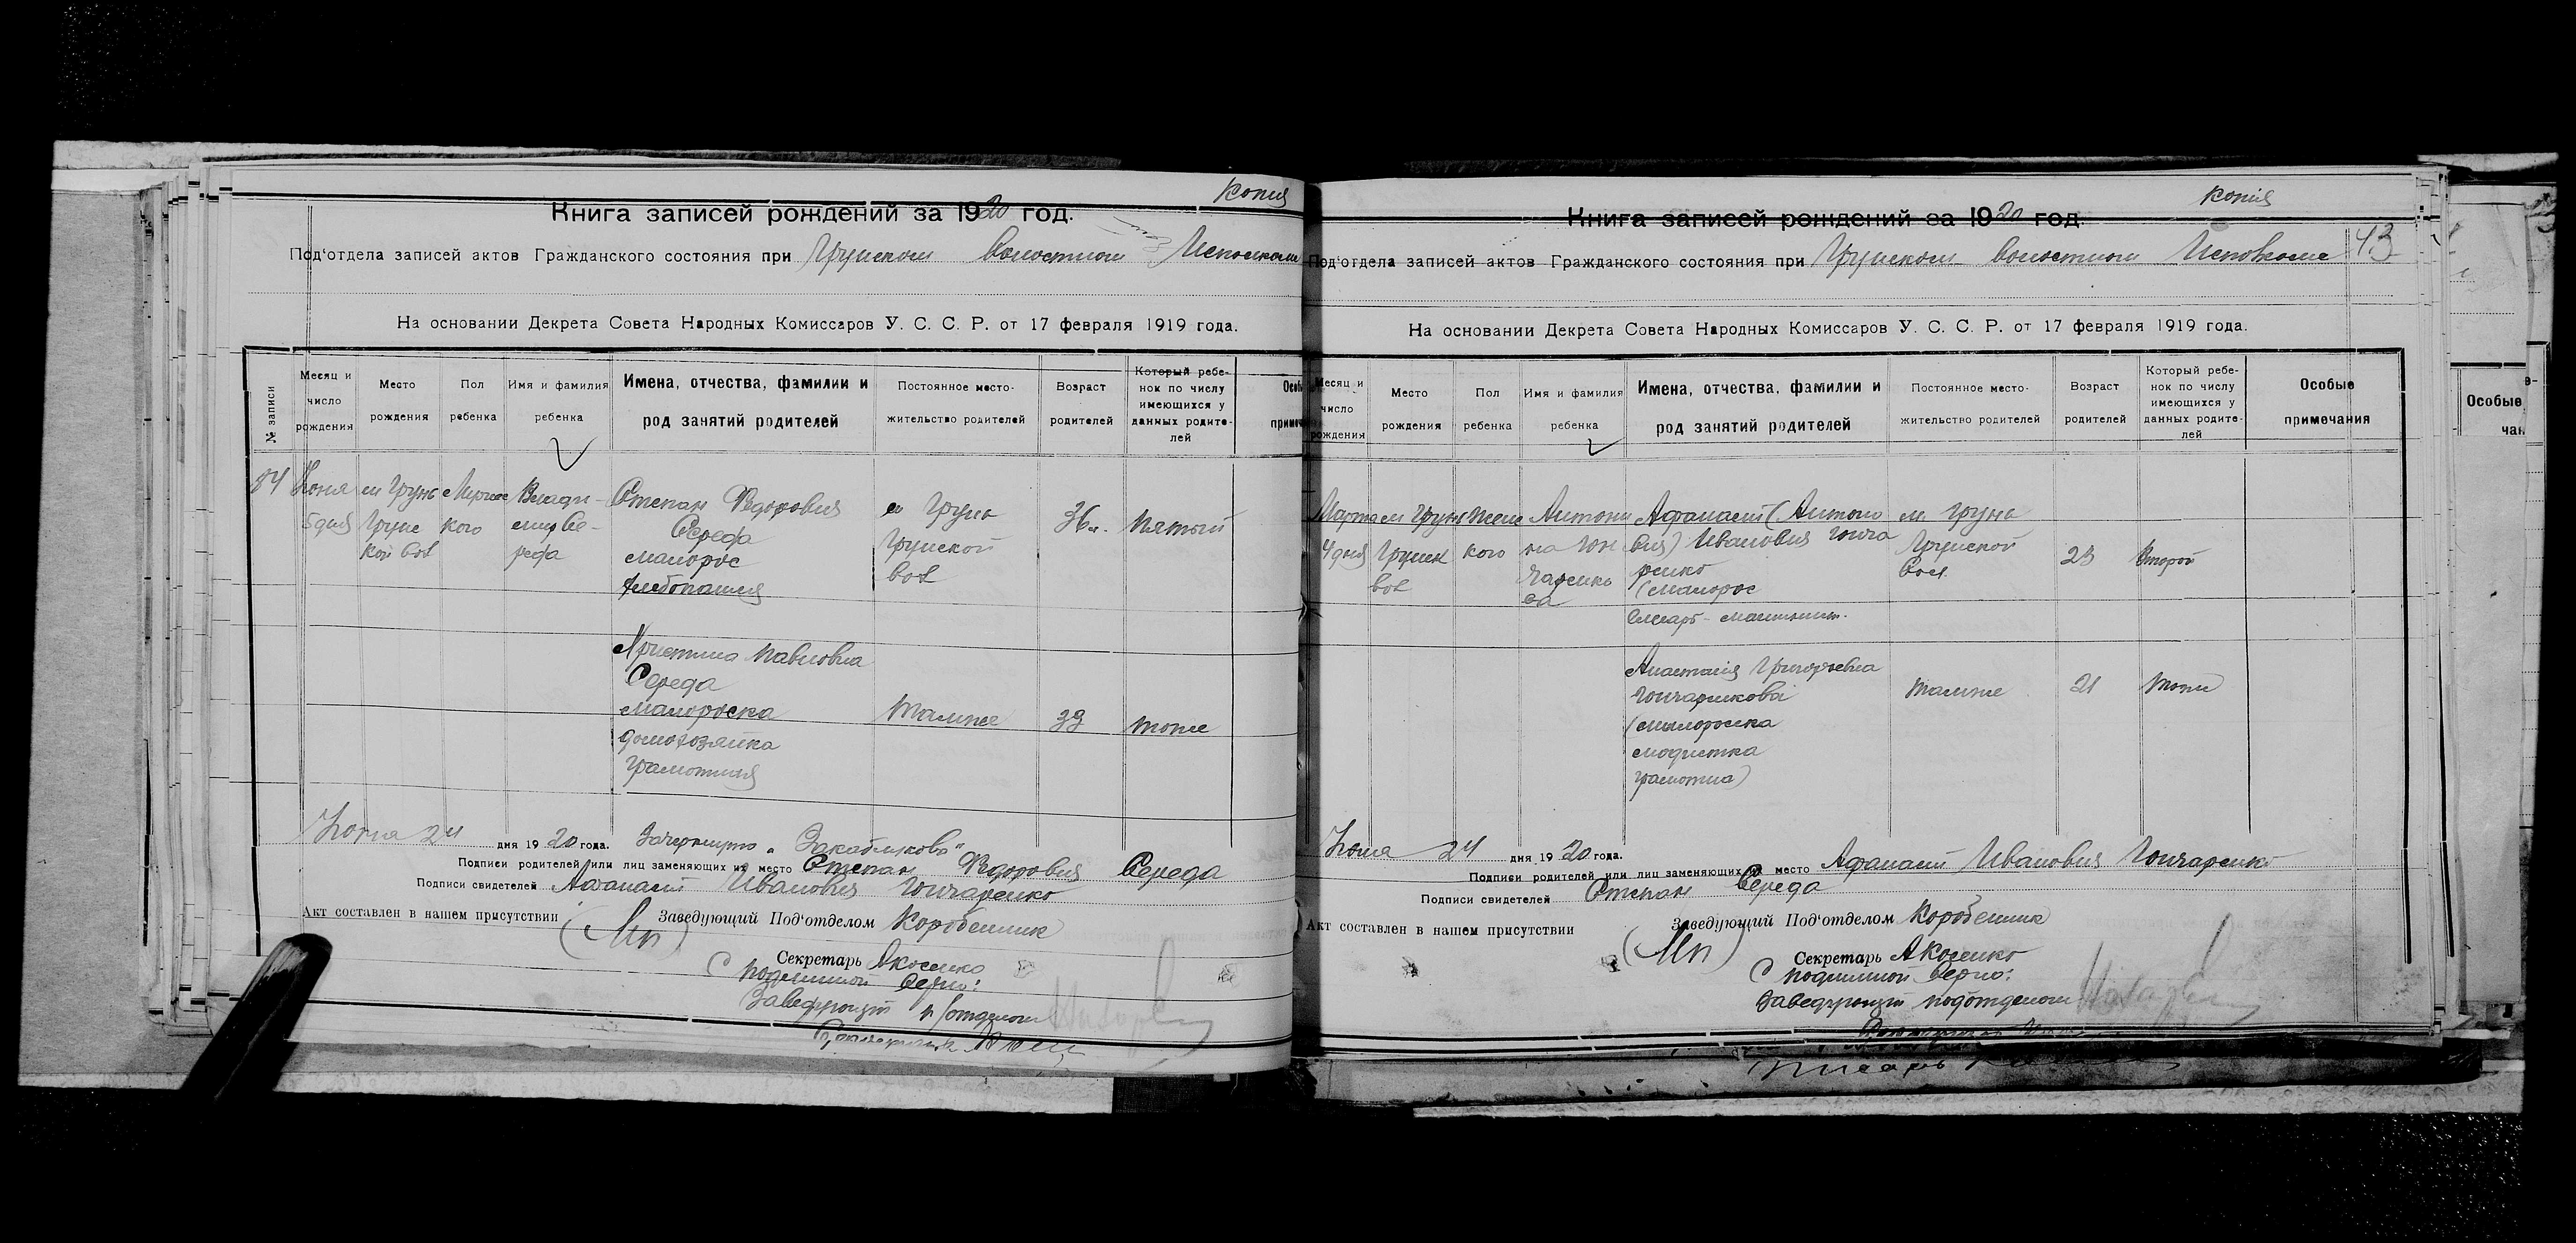 Копия
Книга записей рождений за 1920 год.
Под'отдела записей актов Гражданского состояния при Грунском волостном Исполкоме
На основании Декрета Совета Народных Комиссаров У. С. С. Р. от 17 февраля 1919 года.
№ записи
Месяц и число рождения
Место рождения
Пол ребенка
Имя и фамилия ребенка
Имена, отчества, фамилии и род занятий родителей
Постоянное место-жительство родителей
Возраст родителей
Который ребе-нок по числу имеющихся у данных родите-лей
84
Июня
5 дня
м Грунь
Грунс
кой вол
Мужс
кого
Влади-
мир Се-
реда
Степан Федорович
Середа
малорос
хлебопашец
м Грунь
Грунской
вол
36 л.
Пятый
Христина Павловна
Середа
малороска
домохозяйка
грамотная
Тамже
33
тоже
Июня 24 дня 1920 года. Зачеркнуто
Подписи родителей или лиц заменяющих их место Степан Федорович Середа
Подписи свидетелей Афанасий Иванович Гончаренко
Акт составлен в нашем присутствии
(МП)
Заведующий Под'отделом Коробейник
Секретарь А Косенко
С подлинной верно:
Заведующий п/отделом
Копия
Книга записей рождений за 1920 год.
43
Под'отдела записей актов Гражданского состояния при Грунском волостном Исполкоме
На основании Декрета Совета Народных Комиссаров У. С. С. Р. от 17 февраля 1919 года.
Месяц и число рождения
Место рождения
Пол ребенка
Имя и фамилия ребенка
Имена, отчества, фамилии и род занятий родителей
Постоянное место-жительство родителей
Возраст родителей
Который ребе-нок по числу имеющихся у данных родите-лей
Особые примечания
Марта
4 дня
м Грунь
Грунск
вол
Женс
кого
Антони
на Гон
чаренко
ва
Афанасий (Антоно
вич) Иванович Гонча
ренко
(малорос
слесарь-машинист.
м. Грунь
Грунской
Вол.
23
Второй
Анастасия Григорьевна
Гончаренкова
(малороска
модистка
грамотна)
Тамже
21
тоже
Июня 24 дня 1920 года.
Подписи родителей или лиц заменяющих их место Афанасий Иванович Гончаренко
Подписи свидетелей Степан Середа
Акт составлен в нашем присутствии
(МП)
Заведующий Под'отделом Коробейник
Секретарь А Косенко
С подлинной верно:
Заведующий подотделом
Особые